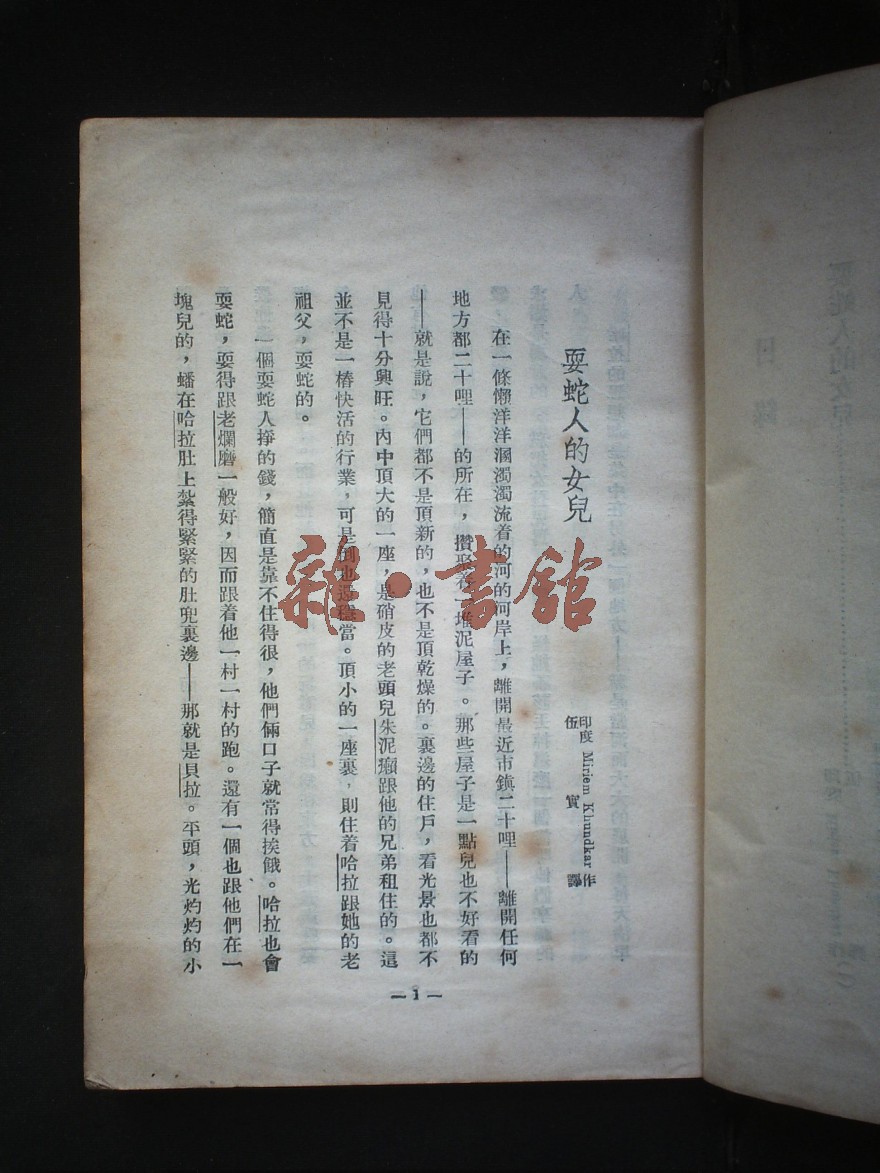 耍蛇人的女兒
印度 Miriem Khundkar 作
伍實譯
在一條懶洋洋溷濁濁流着的河的河岸上，離開最近市鎮二十哩——離開任何
地方都二十哩——的所在，攢聚着一堆泥屋子。那些屋子是一點兒也不好看的
——就是說，它們都不是頂新的，也不是頂乾燥的。裏邊的住戶，看光景也都不
見得十分興旺。內中頂大的一座，是硝皮的老頭兒朱泥癩跟他的兄弟租住的。這
並不是一樁快活的行業，可是倒也還穩當。頂小的一座裏，則住着哈拉跟她的老
祖父，耍蛇的。
一個耍蛇人掙的錢，簡直是靠不住得很，他們倆口子就常得挨餓。哈拉也會
耍蛇，耍得跟老爛磨一般好，因而跟着他一村一村的跑。還有一個也跟他們在一
塊兒的，蟠在哈拉肚上紮得緊緊的肚兜裏邊——那就是貝拉。平頭，光灼灼的小
— 1 —
雜·書館
耍蛇人的女兒
目錄